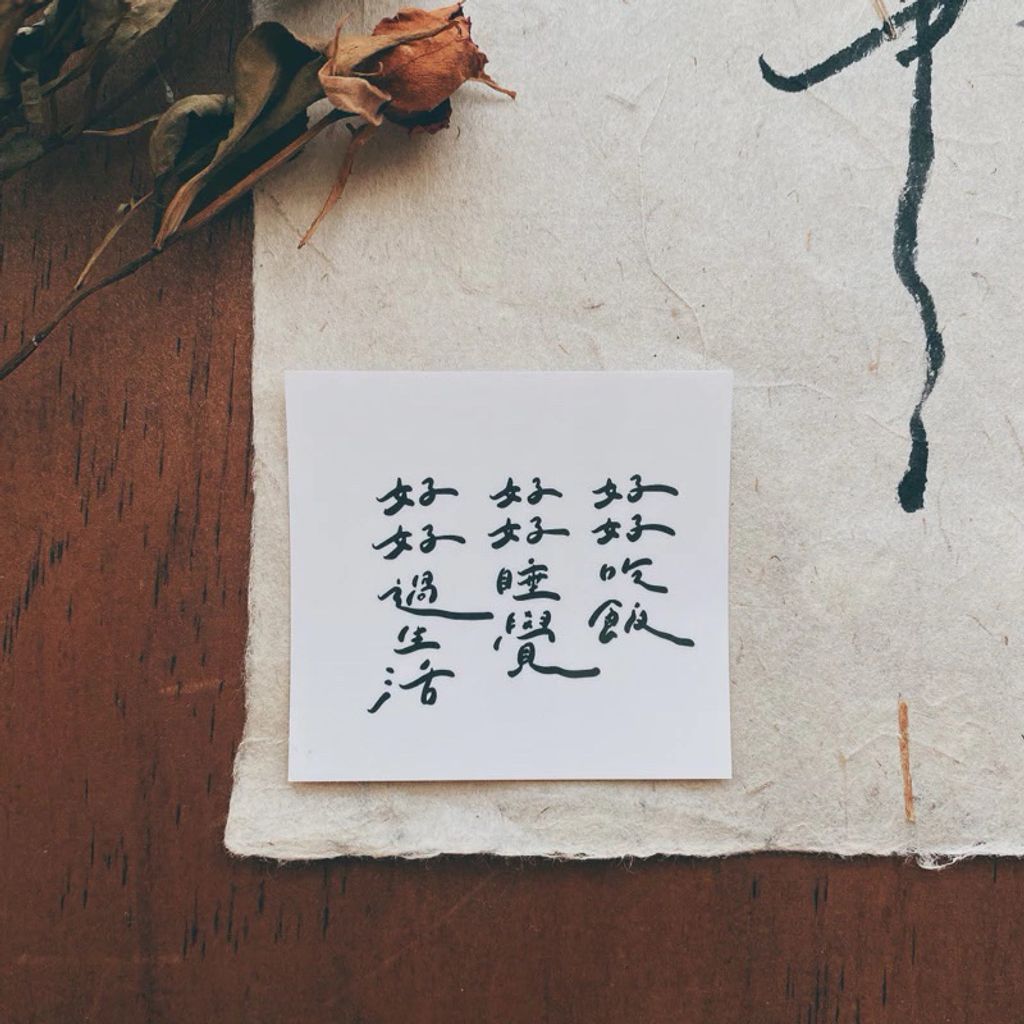 好好吃飯
好好睡覺
好好過生活